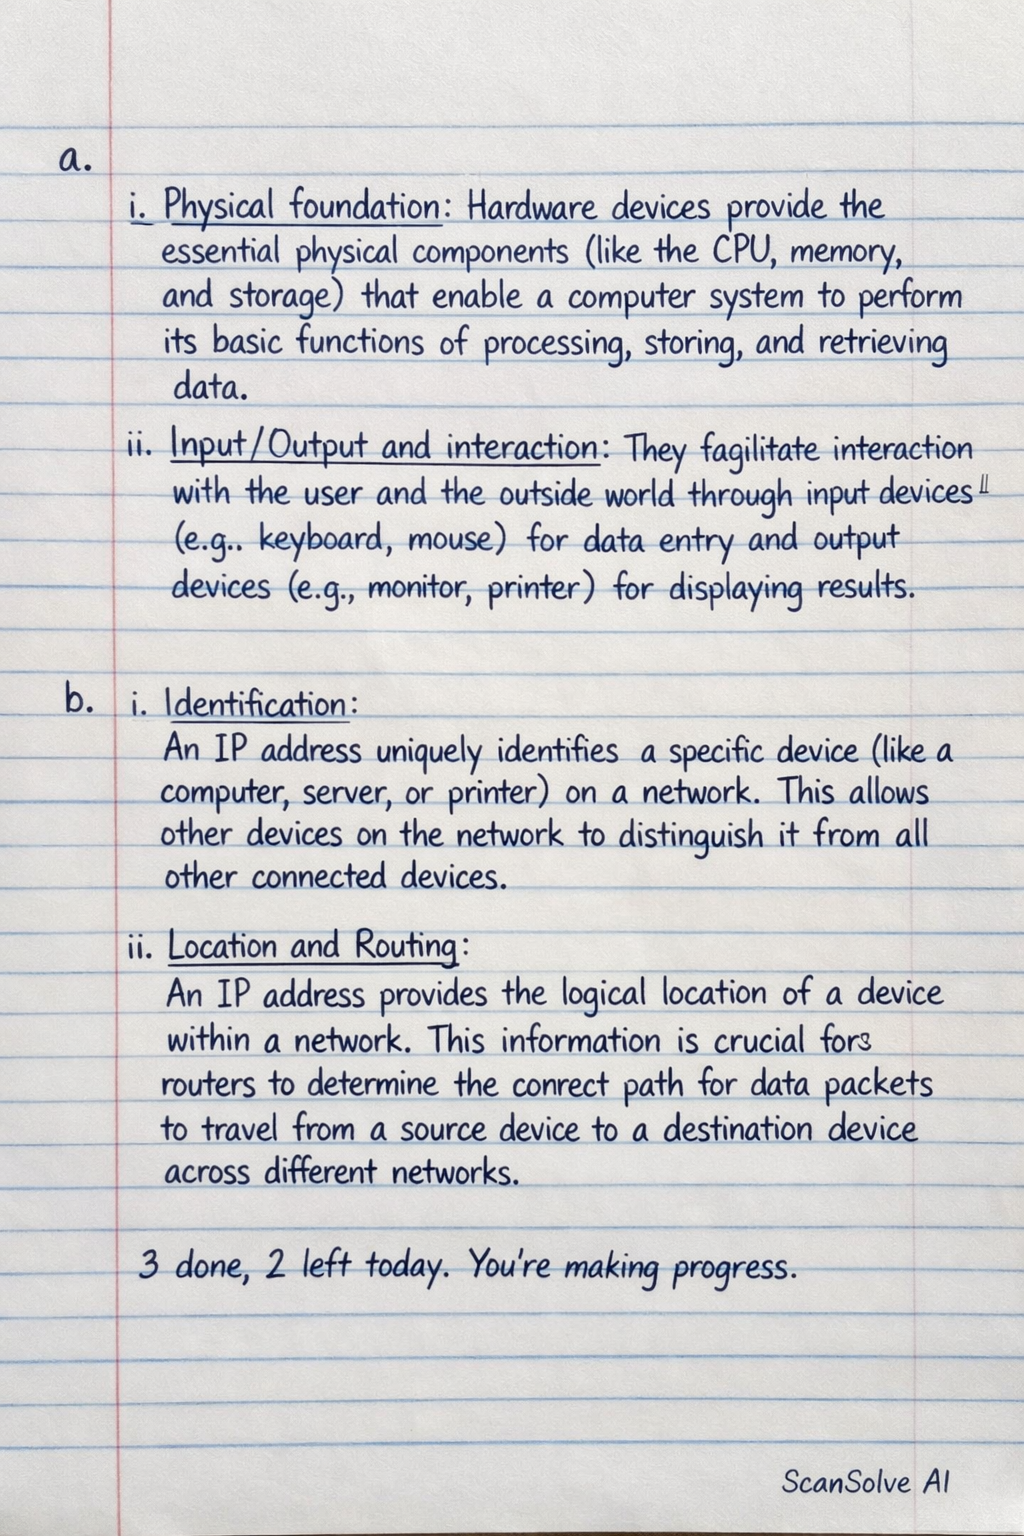 a.
i. Physical foundation: Hardware devices provide the
essential physical components (like the CPU, memory,
and storage) that enable a computer system to perform
its basic functions of processing, storing, and retrieving
data.
ii. Input/Output and interaction: They fagilitate interaction
with the user and the outside world through input devices
(e.g.. keyboard, mouse) for data entry and output
devices (e.g., monitor, printer) for displaying results.
b. i. Identification:
An IP address uniquely identifies a specific device (like a
computer, server, or printer) on a network. This allows
other devices on the network to distinguish it from all
other connected devices.
ii. Location and Routing:
An IP address provides the logical location of a device
within a network. This information is crucial fors
routers to determine the conrect path for data packets
to travel from a source device to a destination device
across different networks.
3 done, 2 left today. You're making progress.
ScanSolve AI